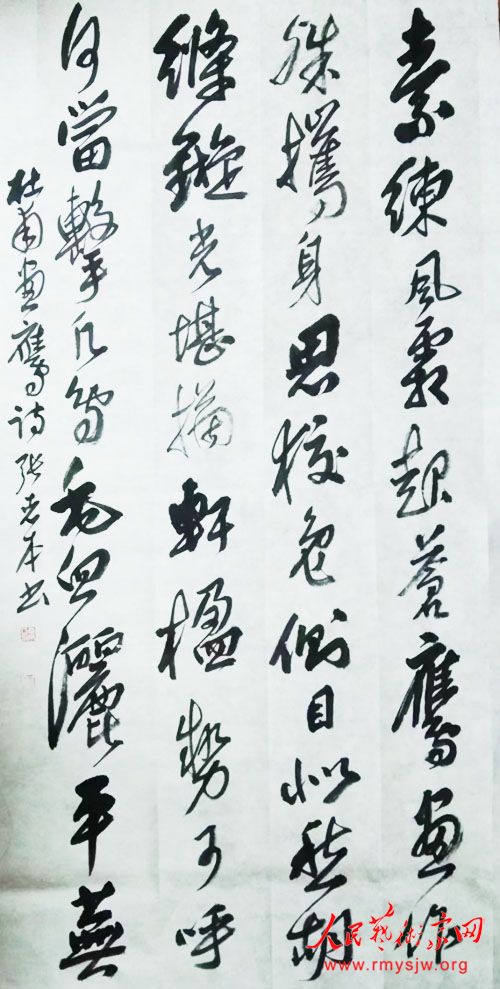 素練風霜起蒼鷹畫作
殊攜身思狡兔側目似愁胡
絛鏇光堪摘軒楹勢可呼
何當擊凡鳥毛血灑平蕪
杜甫畫鷹诗张本书
人民藝術家网
www.rmysjw.org